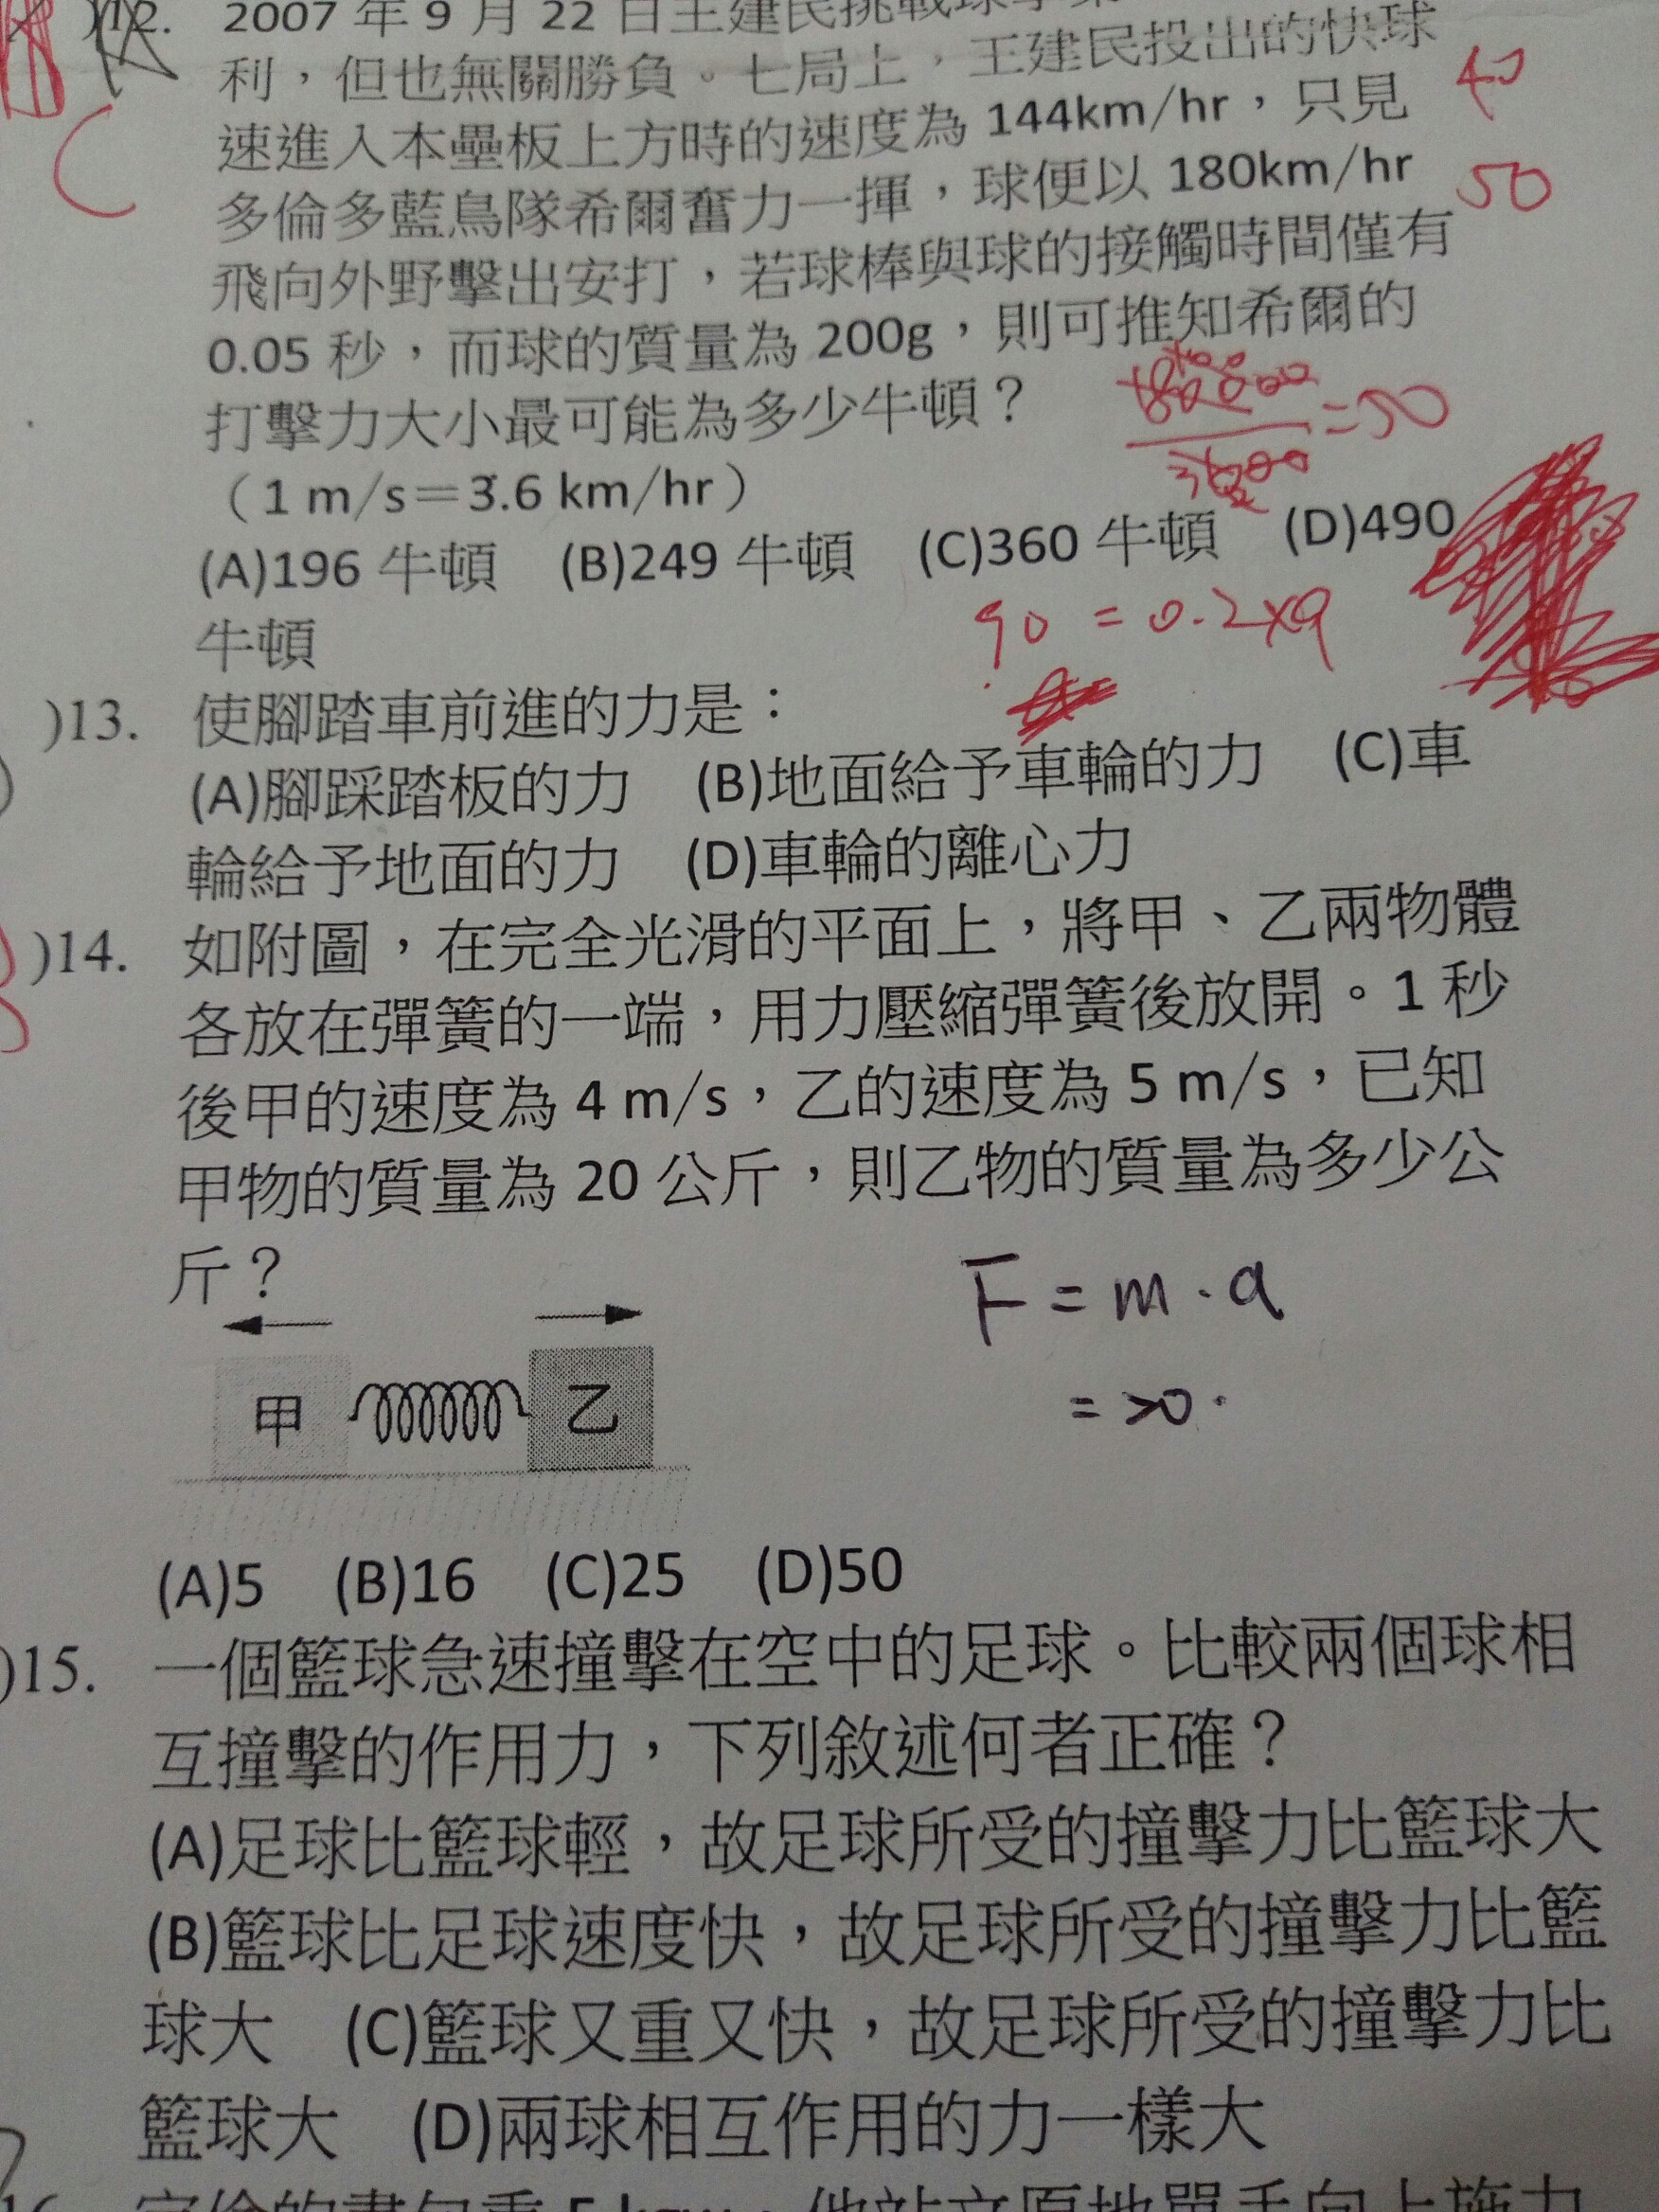 12. 2007 年 9 月 22 日王建民挑戰球季
利，但也無關勝負。七局上，王建民投出的快球
40
速進入本壘板上方時的速度為 144km/hr，只見
C
多倫多藍鳥隊希爾奮力一揮，球便以 180km/hr
50
飛向外野擊出安打，若球棒與球的接觸時間僅有
0.05 秒，而球的質量為 200g，則可推知希爾的
打擊力大小最可能為多少牛頓？
=50
（1 m/s＝3.6 km/hr）
(A)196 牛頓 (B)249 牛頓 (C)360 牛頓 (D)490
牛頓
90 = 0.2×a
)13. 使腳踏車前進的力是：
(A)腳踩踏板的力 (B)地面給予車輪的力 (C)車
輪給予地面的力 (D)車輪的離心力
)14. 如附圖，在完全光滑的平面上，將甲、乙兩物體
各放在彈簧的一端，用力壓縮彈簧後放開。1 秒
後甲的速度為 4 m/s，乙的速度為 5 m/s，已知
甲物的質量為 20 公斤，則乙物的質量為多少公
斤？
F = m · a
= 20 ·
甲 乙
(A)5 (B)16 (C)25 (D)50
)15. 一個籃球急速撞擊在空中的足球。比較兩個球相
互撞擊的作用力，下列敘述何者正確？
(A)足球比籃球輕，故足球所受的撞擊力比籃球大
(B)籃球比足球速度快，故足球所受的撞擊力比籃
球大 (C)籃球又重又快，故足球所受的撞擊力比
籃球大 (D)兩球相互作用的力一樣大